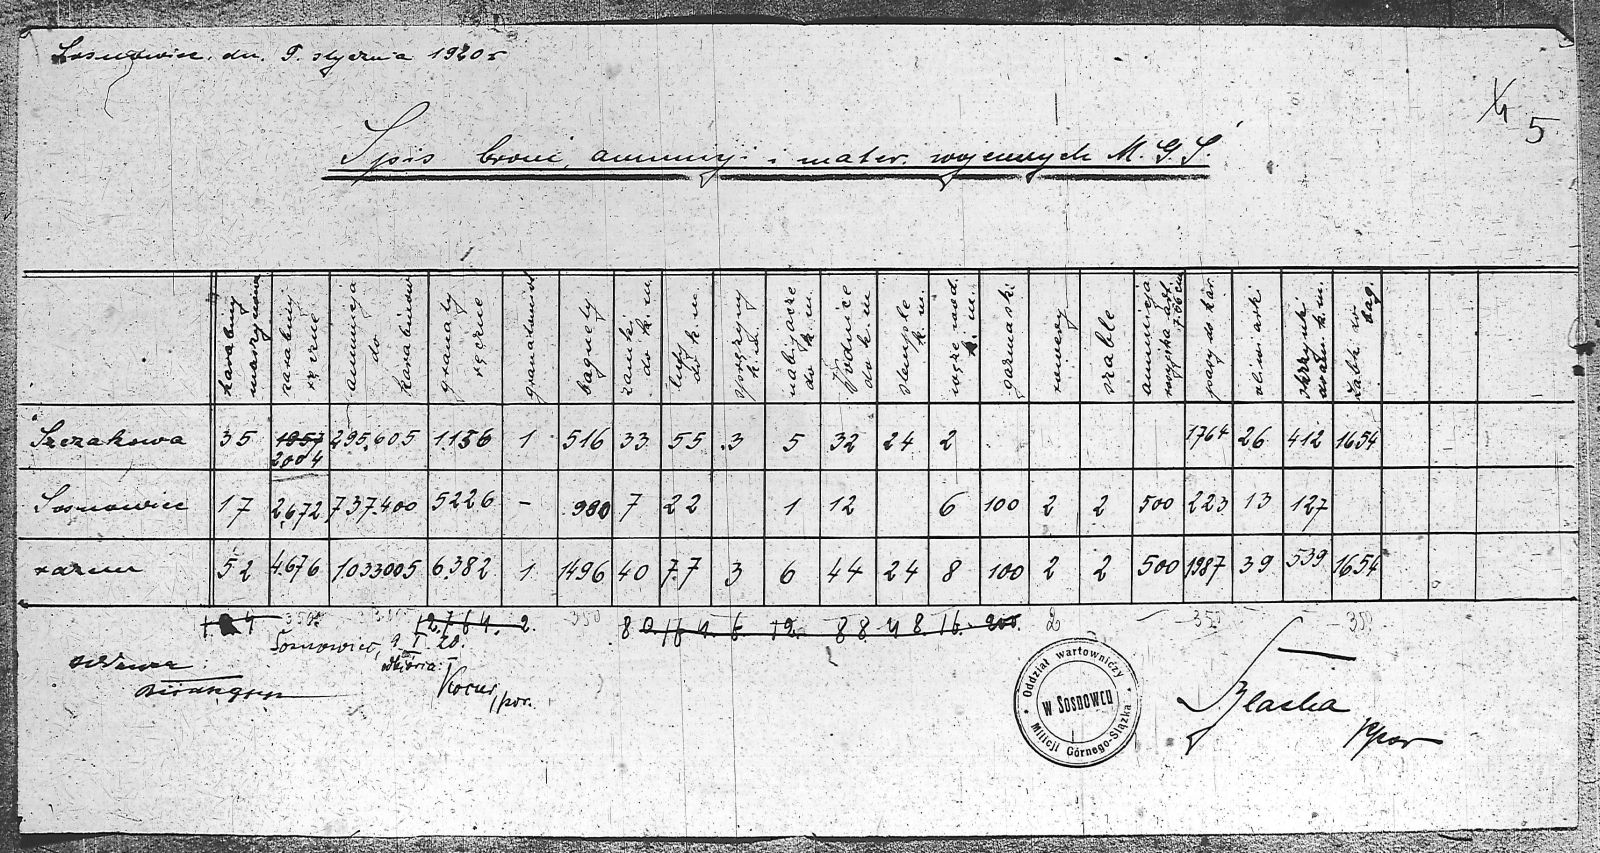 Sosnowiec, dn. 9. stycznia 1920 r
5
Spis broni, amunicji i mater. wojennych M. G. Ś.
karabiny maszynowe | karabiny ręczne | amunicja do karabinów | granaty ręczne | | bagnety | zamki do k. m. | lufy do k. m. | sprężyny k. m. | do k m | Vodnice do k. m | stemple k. m. | węże wod. k. m. | garmaski | rowery | szable | amunicja art. | pasy do kar. | | skrzynki k. m. | Żabk. do bag.
Szczakowa | 35 | 1957 2004 | 295.605 | 1156 | 1 | 516 | 33 | 55 | 3 | 5 | 32 | 24 | 2 | | | | | 1764 | 26 | 412 | 1654
Sosnowiec | 17 | 2672 | 737.400 | 5226 | - | 980 | 7 | 22 | | 1 | 12 | | 6 | 100 | 2 | 2 | 500 | 223 | 13 | 127
razem | 52 | 4.676 | 1033005 | 6.382 | 1 | 1496 | 40 | 77 | 3 | 6 | 44 | 24 | 8 | 100 | 2 | 2 | 500 | 1987 | 39 | 539 | 1654
104 350 12.764. 2. 350 80 6. 12. 88 48. 16. 200. 2 350 350
Sosnowiec, 9. I. 20.
odbiera:
Kocur, por.
Oddział wartowniczy
w Sosnowcu
Milicji Górnego-Ślązka
Blacha
ppor